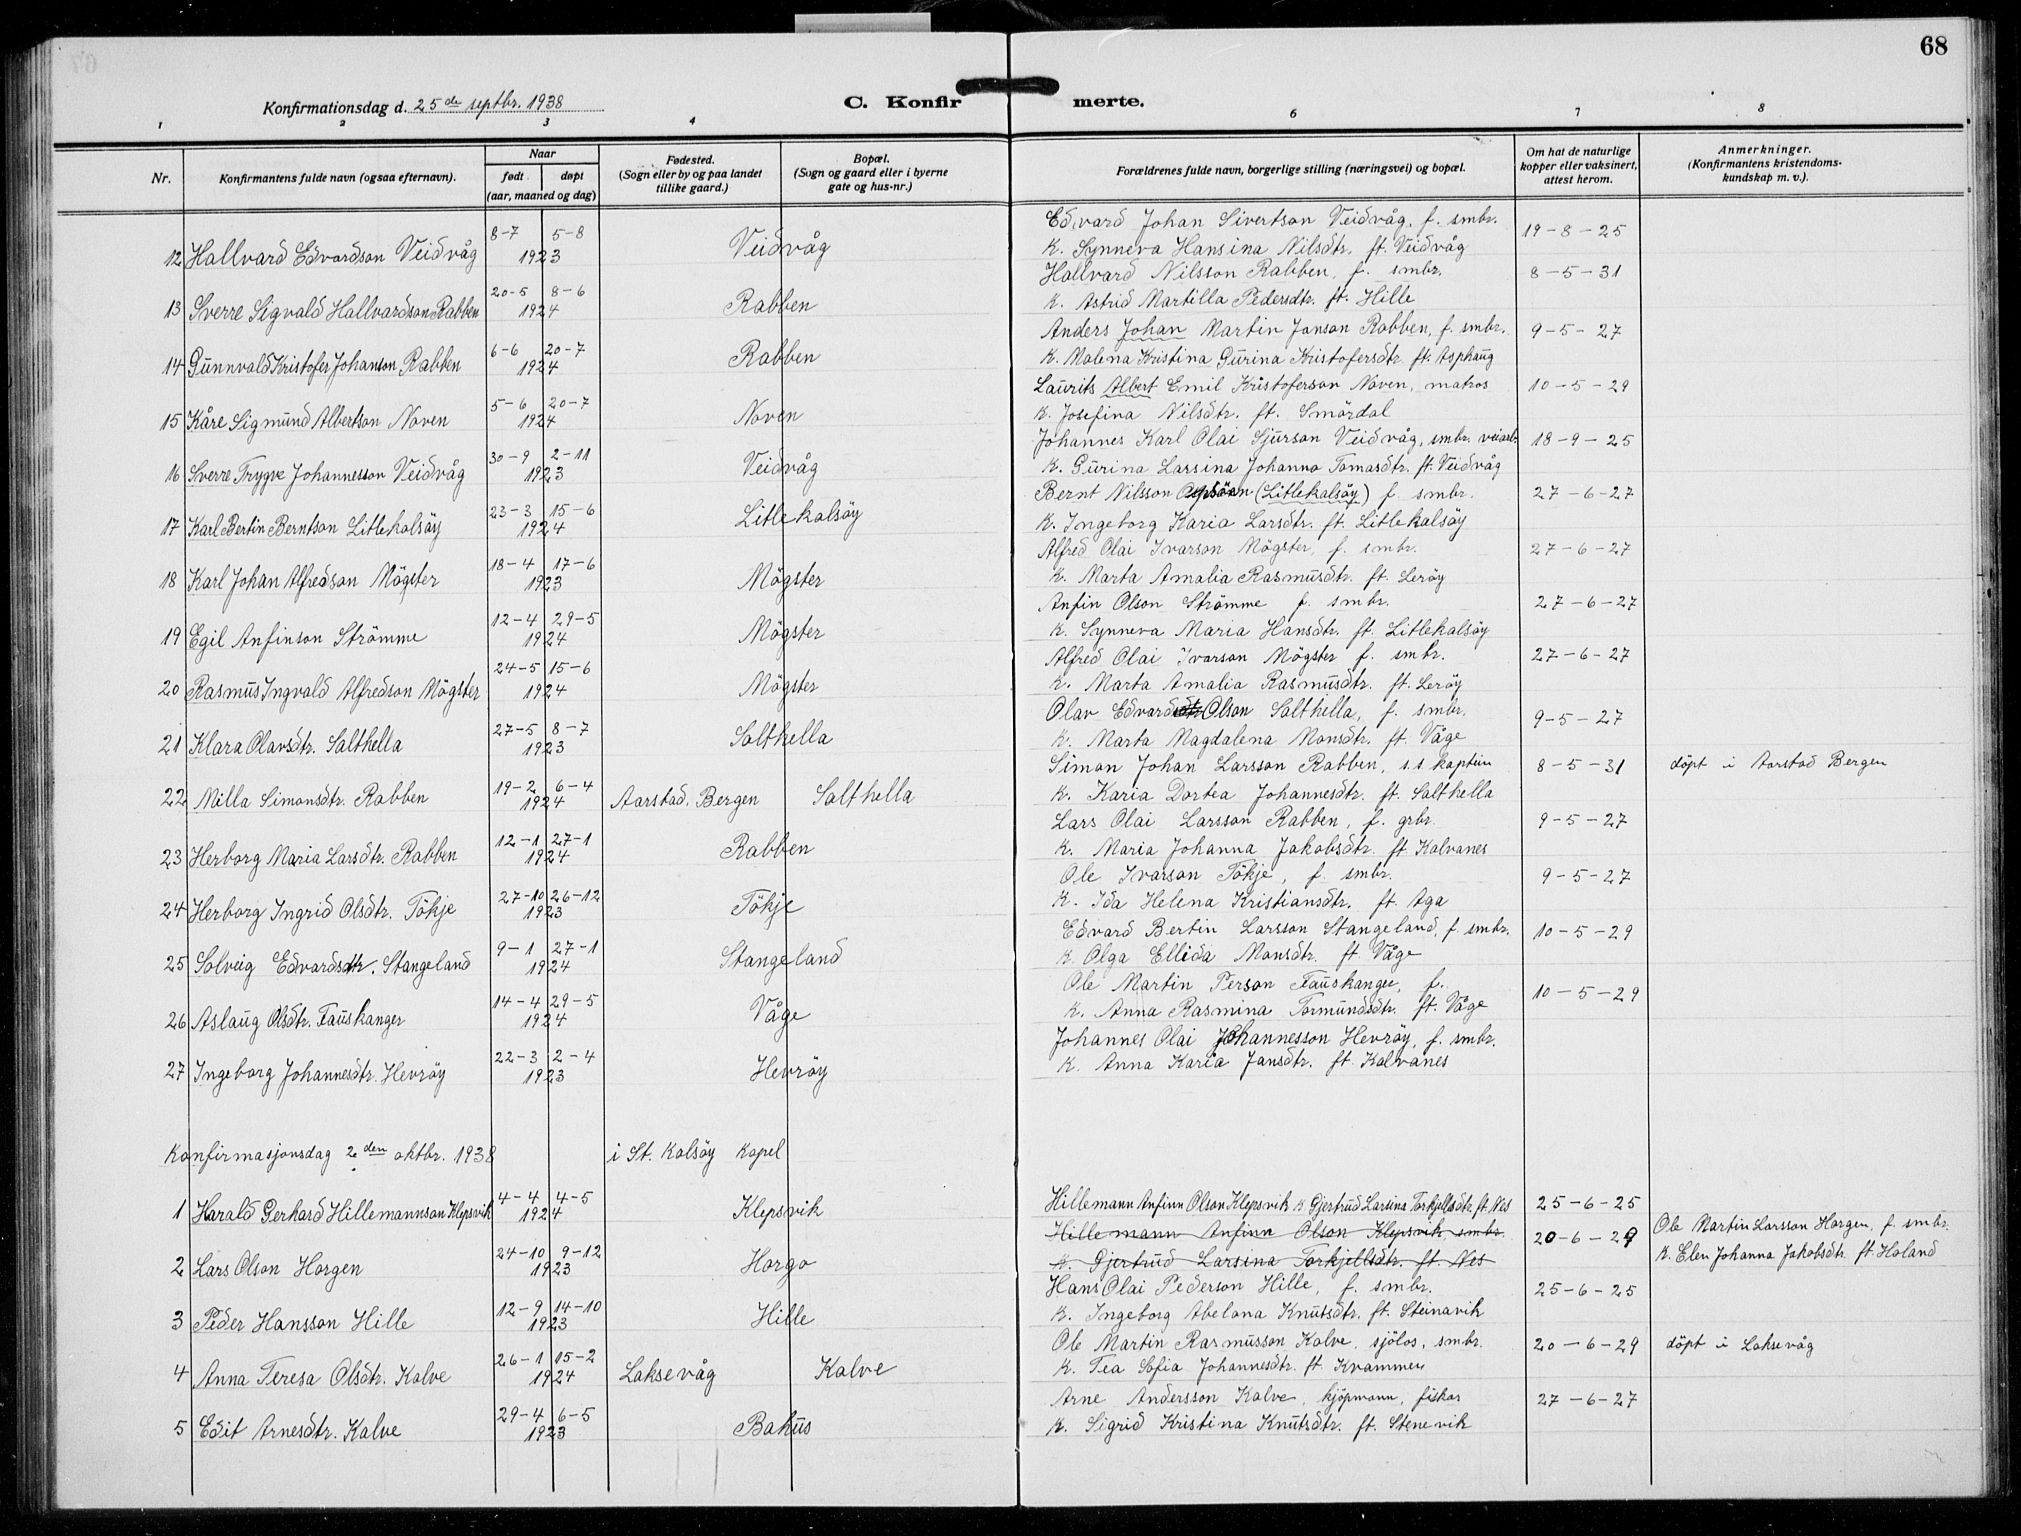 68
Konfirmationsdag d. 25de septbr. 1938
C. Konfirmerte.
1 2 3 4 6 7 8
Nr.
Konfirmantens fulde navn (ogsaa efternavn).
Naar
født døpt
(aar, maaned og dag)
Fødested.
(Sogn eller by og paa landet
tillike gaard.)
Bopæl.
(Sogn og gaard eller i byerne
gate og hus-nr.)
Forældrenes fulde navn, borgerlige stilling (næringsvei) og bopæl.
Om hat de naturlige
kopper eller vaksinert,
attest herom.
Anmerkninger.
(Konfirmantens kristendoms-
kundskap m. v.).
12 Hallvard Edvardson Veidvåg 8-7 5-8 1923 Veidvåg
Edvard Johan Sivertson Veidvåg, f. smbr. 19-8-25
k. Synneva Hansina Nilsdtr. ft. Veidvåg
13 Sverre Sigvald Hallvardson Rabben 20-5 8-6 1924 Rabben
Hallvard Nilsson Rabben, f. smbr. 8-5-31
k. Astrid Martilla Pedersdtr. ft. Hille
14 Gunnvald Kristofer Johanson Rabben 6-6 20-7 1924 Rabben
Anders Johan Martin Janson Rabben, f. smbr. 9-5-27
k. Malena Kristina Gurina Kristofersdtr. ft. Asphaug
15 Kåre Sigmund Albertson Noven 5-6 20-7 1924 Noven
Laurits Albert Emil Kristoferson Noven, matros 10-5-29
k. Josefina Nilsdtr. ft. Smördal
16 Sverre Trygve Johannesson Veidvåg 30-9 2-11 1923 Veidvåg
Johannes Karl Olai Sjurson Veidvåg, smbr. veiarb. 18-9-25
k. Gurina Larsina Johanna Tomasdtr. ft. Veidvåg
17 Karl Bertin Berntson Litlekalsöy 23-3 15-6 1924 Litlekalsöy
Bernt Nilsson (Litlekalsöy) f. smbr. 27-6-27
k. Ingeborg Karia Larsdtr. ft. Litlekalsöy
18 Karl Johan Alfredson Mögster 18-4 17-6 1923 Mögster
Alfred Olai Ivarson Mögster, f. smbr. 27-6-27
k. Marta Amalia Rasmusdtr. ft. Leröy
19 Egil Anfinson Strömme 12-4 29-5 1924 Mögster
Anfin Olson Strömme f. smbr. 27-6-27
k. Synneva Maria Hansdtr. ft. Litlekalsöy
20 Rasmus Ingvald Alfredson Mögster 24-5 15-6 1924 Mögster
Alfred Olai Ivarson Mögster f. smbr. 27-6-27
k. Marta Amalia Rasmusdtr. ft. Leröy
21 Klara Olavsdtr. Salthella 27-5 8-7 1923 Salthella
Olav Edvard Olson Salthella, f. smbr. 9-5-27
k. Marta Magdalena Monsdtr. ft. Våge
22 Milla Simonsdtr. Rabben 19-2 6-4 1924 Aarstad, Bergen Salthella
Simon Johan Larsson Rabben, s.s kaptein 8-5-31 döpt i Aarstad Bergen
k. Karia Dortea Johannesdtr. ft. Salthella
23 Herborg Maria Larsdtr. Rabben 12-1 27-1 1924 Rabben
Lars Olai Larsson Rabben, f. grbr. 9-5-27
k. Maria Johanna Jakobsdtr. ft Kalvanes
24 Herborg Ingrid Olsdtr. Tökje 27-10 26-12 1923 Tökje
Ole Ivarson Tökje, f. smbr. 9-5-27
k. Ida Helena Kristiansdtr. ft. Aga
25 Solveig Edvardsdtr. Stangeland 9-1 27-1 1924 Stangeland
Edvard Bertin Larsson Stangeland, f. smbr. 10-5-29
k. Olga Ellida Monsdtr. ft. Våge
26 Aslaug Olsdtr. Fauskanger 14-4 29-5 1924 Våge
Ole Martin Person Fauskanger, f. 10-5-29
k. Anna Rasmina Tormundsdtr. ft. Våge
27 Ingeborg Johannesdtr. Hevröy 22-3 2-4 1923 Hevröy
Johannes Olai Johannesson Hevröy, f. smbr.
k. Anna Karia Jansdtr. ft. Kalvanes
Konfirmasjonsdag 2den oktbr. 1938 i St. Kalsöy Kapel
1 Harald Gerhard Hillemannson Klepsvik 4-4 4-5 1924 Klepsvik
Hillemann Anfinn Olson Klepsvik k Gjertrud Larsina Torkjellsdtr. ft. Nes 25-6-25
2 Lars Olson Horgen 24-10 9-12 1923 Horgo
Hillemann Anfinn Olson Klepsvik smbr. 20-6-29 Ole Martin Larsson Horgen, f. smbr.
k. Gjertrud Larsina Torkjellsdtr. ft. Nes k. Elen Johanna Jakobsdtr. ft. Holand
3 Peder Hansson Hille 12-9 14-10 1923 Hille
Hans Olai Pederson Hille, f. smbr. 25-6-25
k. Ingeborg Abelona Knutsdtr. ft. Steinavik
4 Anna Teresa Olsdtr. Kalve 26-1 15-2 1924 Laksevåg Kalve
Ole Martin Rasmusson Kalve, sjölos, smbr. 20-6-29 döpt i Laksevåg
k. Tea Sofia Johannesdtr. ft. Kvammen
5 Edit Arnesdtr. Kalve 29-4 6-5 1923 Bakus
Arne Andersson Kalve, kjöpmann, fiskar 27-6-27
k. Sigrid Kristina Knutsdtr. ft. Stenevik